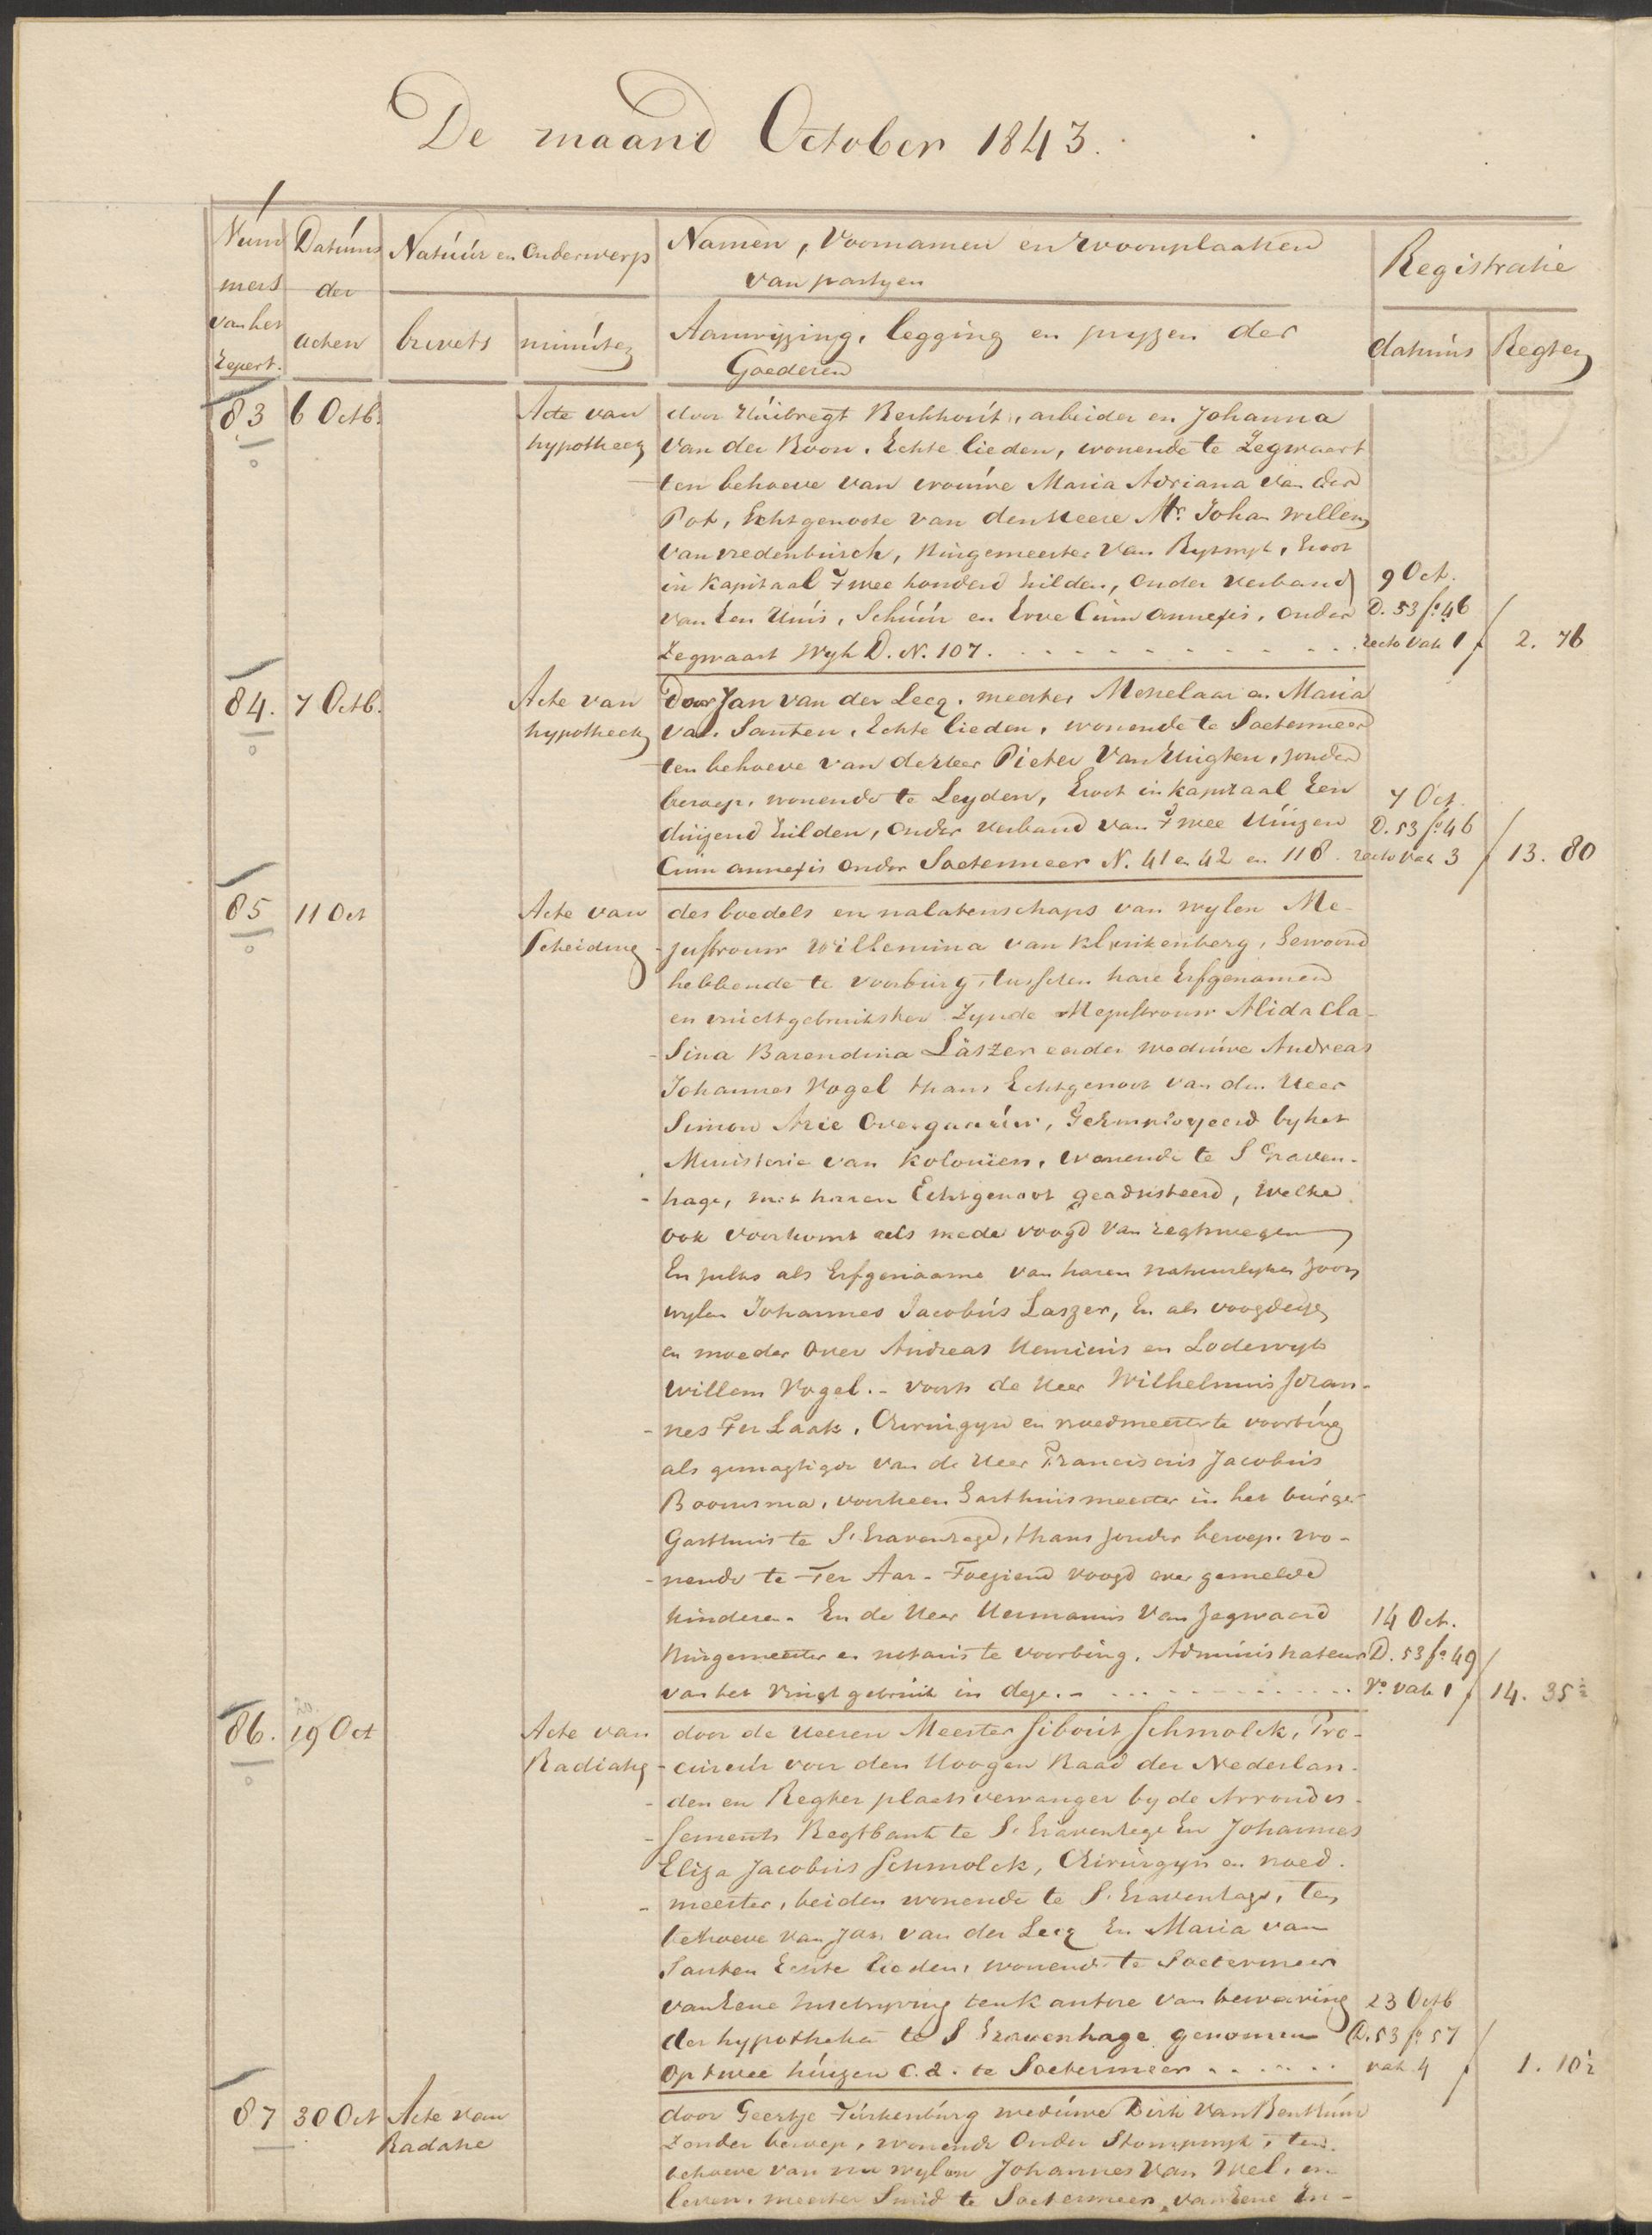 De maand October 1843.
Num Datums Natuur en Onderwerp Namen, Voornamen en woonplaatsen Registratie
mers der van partyen
van het acten brevets minutes Aanwyzing, legging en pryzen der datums Regten
Repert. Goederen
83 6 Octb. Acte van door Huibregt Berkhout, arbeider en Johanna
hypotheek van der Boon, Echte lieden, wonende te Zegwaart
ten behoeve van vrouwe Maria Adriana van der
Pot, Echtgenoote van den Heere Mr. Johan Willem
van vredenburch, Burgemeester van Ryswyk, Groot
in Kapitaal Twee honderd Gulden, onder verband 9 Oct.
van Een Huis, Schuur en Erve Cum annexis, onder D. 53 fo. 46
Zegwaart Wyk D. N. 107. recto vak 1 2. 76
84. 7 Octb. Acte van Door Jan van der Lecq, meester Metselaar en Maria
hypotheek van Santen, Echte lieden, wonende te Soetermeer
ten behoeve van de Heer Pieter van zonder
beroep, wonende te Leyden, Groot in kapitaal Een 7 Oct.
duizend Gulden, onder verband van Twee Huizen D. 53 fo. 46
Cum annexis onder Soetermeer N. 41 en 42 en 118. recto vak 3 13. 80
85 11 Oct Acte van des boedels en nalatenschaps van wylen Me-
Scheiding -juffrouw Willemina van Klinkenberg, Gewoond
hebbende te Voorburg, tusschen hare Erfgenamen
en vruchtgebruikster Zynde Mejuffrouw Alida Cla-
-sina Barendina Läszer eerder weduwe Andreas
Johannes Vogel thans Echtgenoot van den Heer
Simon Arie Overgaauw, Geëmployeerd by het
Ministerie van Kolonien, wonende te S Graven-
-hage, met haren Echtgenoot geadsisteerd, welke
ook voorkomt als mede voogd van regtswegen
En zulks als Erfgenaame van haren natuurlyken zoon
wylen Johannes Jacobus Laszer, En als voogdesse
en moeder over Andreas en Lodewyk
Willem Vogel. - voorts de Heer Wilhelmus Johan-
-nes Ter Laak, Chirurgyn en vroedmeester te voorburg
als gemagtigde van de Heer Franciscus Jacobus
Boomsma, voorheen Gasthuismeester in het burger
Gasthuis te S. Gravenhage, thans zonder beroep, wo-
-nende te Ter Aar - Toeziend voogd over gemelde
kinderen. En de Heer Hermanus van Zegwaard 14 Oct.
Burgemeester en notaris te voorburg, Administrateur D. 53 fo. 49
van het vrugt gebruik in deze. - Vo. vak 1 14. 35½
86. 19 Oct Acte van door de Heeren Meester Sibout Schmolck, Pro-
Radiatie -cureur voor den Hoogen Raad der Nederlan-
-den en Regter plaatsvervanger by de Arrondis-
-sements Regtbank te S. Gravenhage En Johannes
Eliza Jacobus Schmolck, Chirurgyn en vroed-
-meester, beiden wonende te S. Gravenhage, ten
behoeve van Jan van der Lecq En Maria van
Santen Echte lieden, wonende te Soetermeer
van Eene Inschryving ten kantore van bewaring 23 Octb
der hypotheken te S Gravenhage genomen D. 53 fo. 57
op twee huizen C. a. te Soetermeer vak 4 1. 10½
87 30 Oct Acte van door Geertje Turkenburg weduwe Dirk van Benthum
Radatie Zonder beroep, wonende onder Stompwyk, ten
behoeve van nu wylen Johannes van Wel, in
leven meester Smid te Soetermeer, van Eene In-